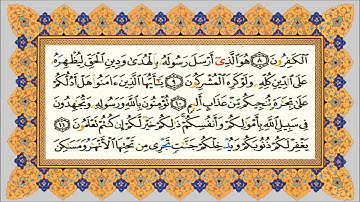 ٱلْكَٰفِرُونَ ٨ هُوَ ٱلَّذِىٓ أَرْسَلَ رَسُولَهُۥ بِٱلْهُدَىٰ وَدِينِ ٱلْحَقِّ لِيُظْهِرَهُۥ
عَلَى ٱلدِّينِ كُلِّهِۦ وَلَوْ كَرِهَ ٱلْمُشْرِكُونَ ٩ يَٰٓأَيُّهَا ٱلَّذِينَ ءَامَنُوا۟ هَلْ أَدُلُّكُمْ
عَلَىٰ تِجَٰرَةٍ تُنجِيكُم مِّنْ عَذَابٍ أَلِيمٍ ١٠ تُؤْمِنُونَ بِٱللَّهِ وَرَسُولِهِۦ وَتُجَٰهِدُونَ
فِى سَبِيلِ ٱللَّهِ بِأَمْوَٰلِكُمْ وَأَنفُسِكُمْ ذَٰلِكُمْ خَيْرٌ لَّكُمْ إِن كُنتُمْ تَعْلَمُونَ ١١
يَغْفِرْ لَكُمْ ذُنُوبَكُمْ وَيُدْخِلْكُمْ جَنَّٰتٍ تَجْرِى مِن تَحْتِهَا ٱلْأَنْهَٰرُ وَمَسَٰكِنَ